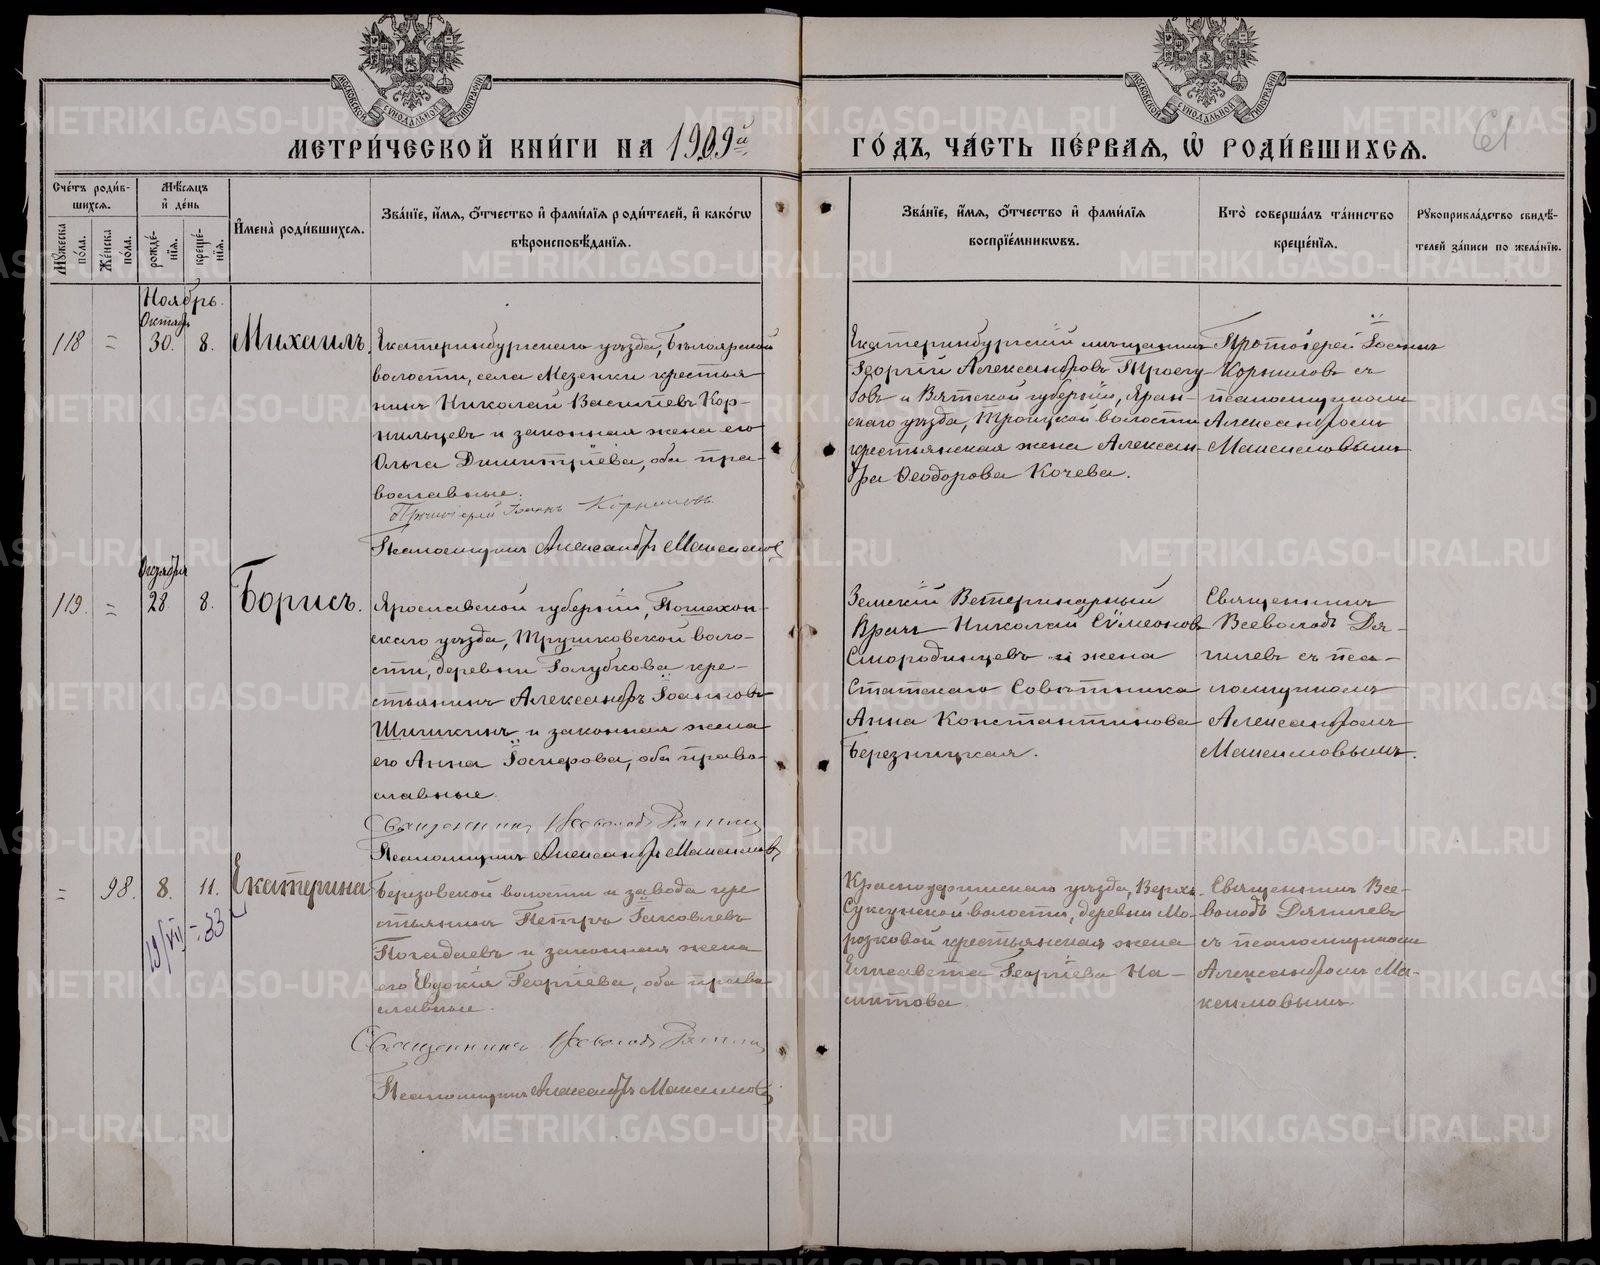 МЕТРИ́ЧЕСКОЙ КНИ́ГИ НА 1909й ГО́ДЪ, ЧА́СТЬ ПЕ́РВАЯ, Ѡ҆ РОДИ́ВШИХСЯ.
61
Сче́тъ роди́в-
шихся.
Мꙋ́жеска по́ла.
Же́нска по́ла.
Мѣ́сяцъ
и҆ де́нь
рожде́-
нїя.
креще́-
нїя.
И҆мена̀ роди́вшихся.
Зва́нїе, и҆́мя, ѻ҆́тчество и҆ фами́лїя роди́телей, и҆ како́гѡ
вѣроисповѣ́данїя.
Зва́нїе, и҆́мя, ѻ҆́тчество и҆ фами́лїя
воспрїе́мникѡвъ.
Кто̀ соверша́лъ та́инство
креще́нїя.
Рꙋкоприкла́дство свидѣ́-
телей за́писи по жела́нїю.
Ноябрь.
Октября
118 = 30. 8. Михаилъ.
Екатеринбургскаго уѣзда, Бѣлоярской
волости, села Мезенки крестья-
нинъ Николай Васильевъ Кор-
нильцевъ и законная жена его
Ольга Димитріева, оба пра-
вославные.
Протоіерей Іоаннъ Корниловъ
Псаломщикъ Александръ Максимовъ
Екатеринбургскій мѣщанинъ
Георгій Александровъ Трегу-
бовъ и Вятской губерніи, Яран-
скаго уѣзда, Троицкой волости
крестьянская жена Алексан-
дра Ѳеодорова Кочева.
Протоіерей Іоаннъ
Корниловъ съ
псаломщикомъ
Александромъ
Максимовымъ
Октября
119. = 28. 8. Борисъ.
Ярославской губерніи, Пошехон-
скаго уѣзда, Трушковской воло-
сти, деревни Голубкова кре-
стьянинъ Александръ Іоанновъ
Шишкинъ и законная жена
его Анна Іосифова, оба право-
славные.
Священникъ Всеволодъ Дягилевъ
Псаломщикъ Александръ Максимовъ
Земскій Ветеринарный
Врачъ Николай Сѵмеоновъ
Смородинцевъ и жена
Статскаго Совѣтника
Анна Константинова
Березницкая.
Священникъ
Всеволодъ Дя-
гилевъ съ пса-
ломщикомъ
Александромъ
Максимовымъ.
= 98. 8. 11. Екатерина
19/VII – 33
Березовской волости и завода кре-
стьянинъ Петръ Іаковлевъ
Погадаевъ и законная жена
его Евдокія Георгіева, оба право-
славные.
Священникъ Всеволодъ Дягилевъ
Псаломщикъ Александръ Максимовъ
Красноуфимскаго уѣзда, Верхъ-
Суксунской волости, деревни Мо-
розковой крестьянская жена
Елисавета Георгіева
Священникъ Все-
володъ Дягилевъ
съ псаломщикомъ
Александромъ Ма-
ксимовымъ
METRIKI.GASO-URAL.RU